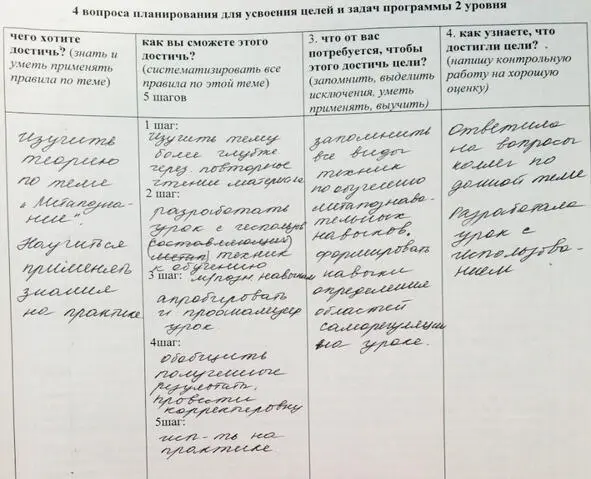 4 вопроса планирования для усвоения целей и задач программы 2 уровня
чего хотите
достичь? (знать и
уметь применять
правила по теме)
Изучить
теорию
по теме
„Метапозна-
ние".
Научится
применять
знания
на практике
как вы сможете этого
достичь?
(систематизировать все
правила по этой теме)
5 шагов
1 шаг:
Изучить тему
более глубже
через повторное
чтение материала
2 шаг:
разработать
урок с использов
составляющих
техник
к обучению
3 шаг: м/позн. навыкам
апробировать
и проанализир
урок.
4шаг:
обобщить
полученные
результаты,
провести
корректировку
5шаг:
исп-ть на
практике.
3. что от вас
потребуется, чтобы
этого достичь цели?
(запомнить, выделить
исключения, уметь
применять, выучить)
запомнить
все виды
техник
по обучению
метапознава-
тельных
навыков,
формировать
навыки
определения
областей
саморегуляции
на уроке.
4. как узнаете, что
достигли цели? .
(напишу контрольную
работу на хорошую
оценку)
Ответила
на вопросы
коллег по
данной теме
Разработала
урок с
использова-
нием